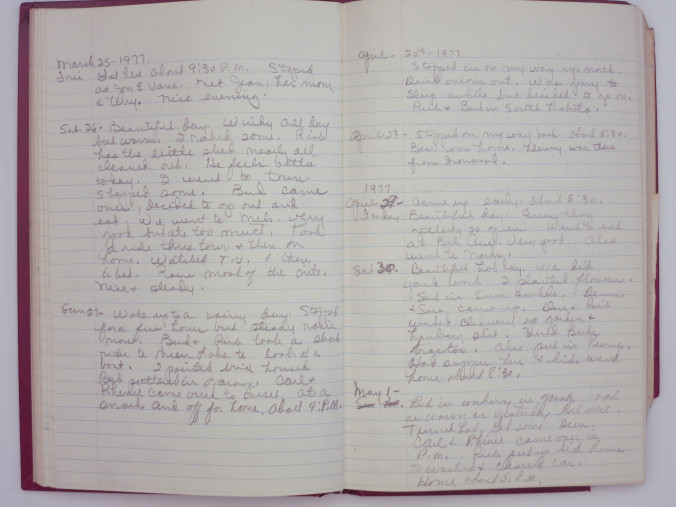 March 25-1977.
Fri Got here about 9:30 P.M. Stopped
at Jon E Vans. Met Jean, her mom
& Terry. Nice evening.
Sat. 26- Beautiful day. Windy all day
but warm. I raked some. Rich
has the little shed nearly all
cleaned out. He feels better
today. I went to town
shopped some. Bud came
over, decided to go out and
eat. We went to Mels. very
good but ate too much. Took
a ride thru town & then on
home. Watched T.V. & then
to bed. Rain most of the nite.
Nice & steady.
Sun 27- Woke up to a rainy day. Stopped
for a few hours but steady rain
now. Bud & Rich took a short
ride to Green Lake to look at a
boat. I painted bird houses
Rich puttered in garage. Carl &
came over to visit. ate a
snack and off for home. About 9:P.M.
April- 20th-1977
Stopped in on my way up north.
onions out. Was going to
sleep awhile but decided to go on.
Rich & Bud in South Dakota.
April 23- Stopped on my way back about 6:30.
Bud was home. was there
from Ironwood.
1977
April 29- Came up early. about 5:30.
Friday Beautiful day. Everything
so green. Went to eat
at very good. Also
went to
Sat 30- Beautiful hot day. We did
yard work. I planted flowers.
Sat in sun awhile. Dennis
& came up. Rich
worked cleaning up garden &
hauling Used Buds
tractor. Also put in Pump.
Had supper & kids went
home about 8:30.
May 1- Rich is working in garage. not
as warm as yesterday, but nice.
Turned hot, got some sun.
Carl & came over in
P.M. Rich put up bird house.
I washed & cleaned car.
Home about 5. P.M.